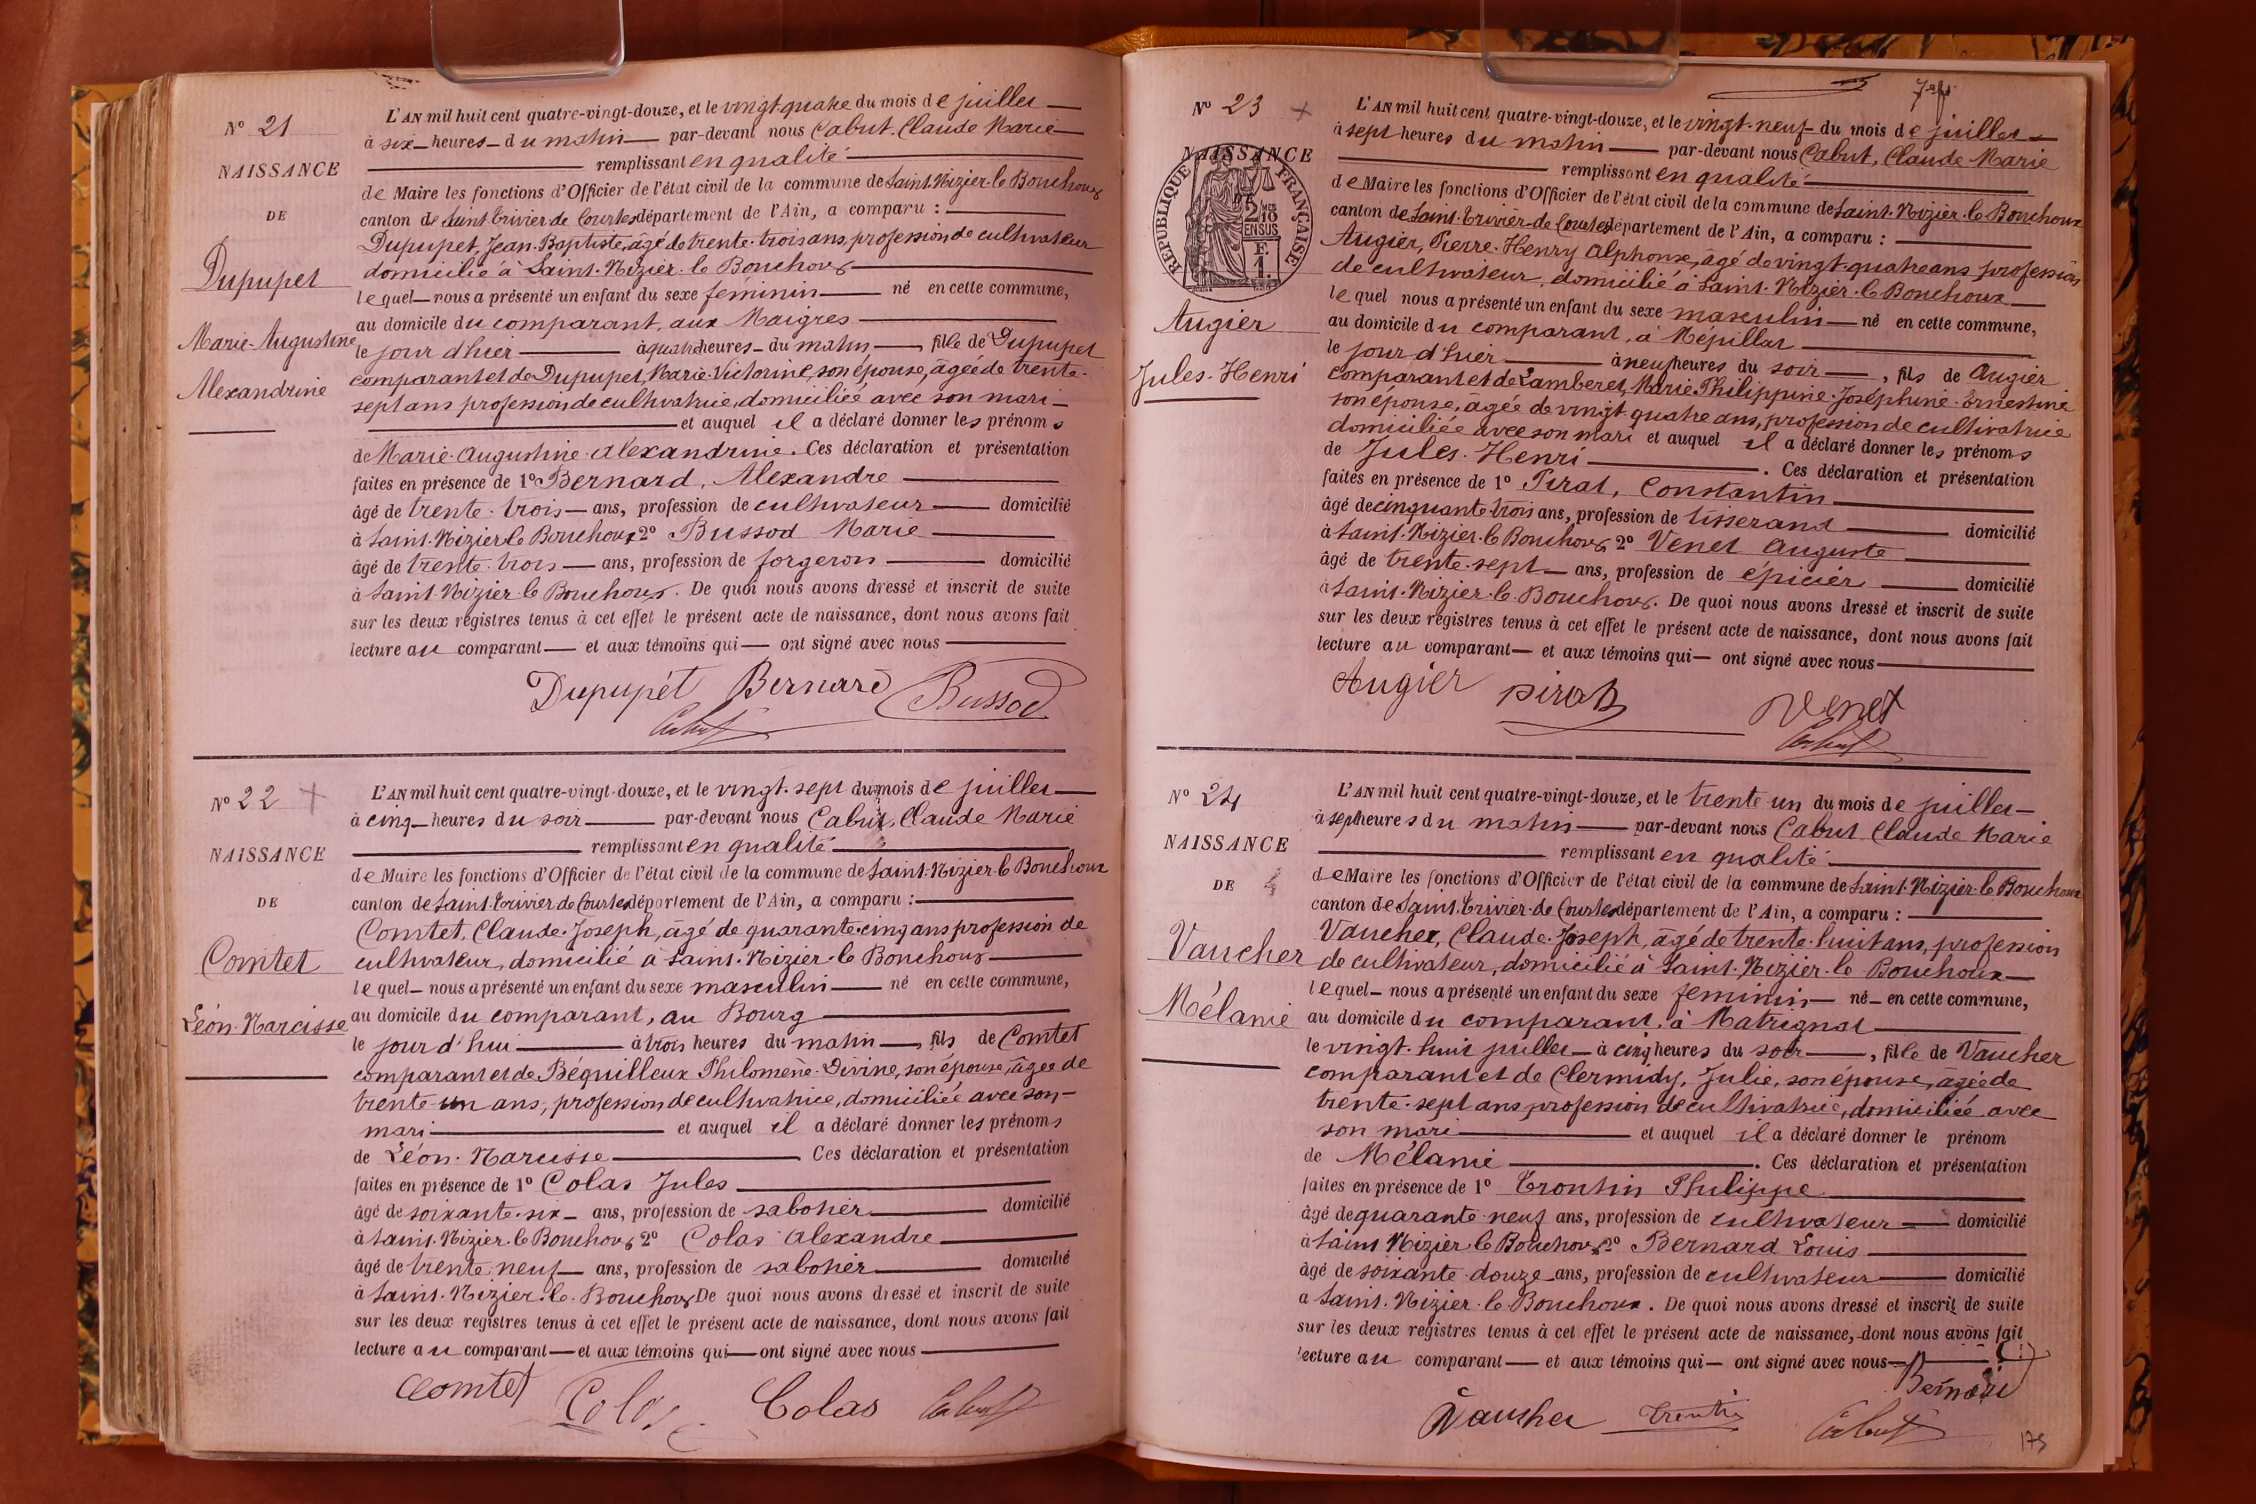 N° 21
NAISSANCE
DE
Dupupet
Marie-Augustine
Alexandrine
L'AN mil huit cent quatre-vingt-douze, et le vingt quatre du mois de juillet
à six heures du matin par-devant nous Cabut, Claude Marie
remplissant en qualité
de Maire les fonctions d'Officier de l'état civil de la commune de Saint-Nizier-le Bouchoux
canton de Saint-Trivier-de Courtes département de l'Ain, a comparu :
Dupupet, Jean-Baptiste, âgé de trente-trois ans, profession de cultivateur
domicilié à Saint-Nizier-le Bouchoux
lequel nous a présenté un enfant du sexe féminin né en cette commune,
au domicile du comparant, aux Maigres
le jour d'hier à quatre heures du matin, fille de Dupupet
comparant et de Dupupet, Marie-Victorine, son épouse, âgée de trente-
sept ans profession de cultivatrice, domiciliée avec son mari
et auquel il a déclaré donner les prénoms
de Marie-Augustine-Alexandrine. Ces déclaration et présentation
faites en présence de 1° Bernard, Alexandre
âgé de trente-trois ans, profession de cultivateur domicilié
à Saint-Nizier-le Bouchoux 2° Bussod Marie
âgé de trente-trois ans, profession de forgeron domicilié
à Saint-Nizier-le Bouchoux. De quoi nous avons dressé et inscrit de suite
sur les deux registres tenus à cet effet le présent acte de naissance, dont nous avons fait
lecture au comparant et aux témoins qui ont signé avec nous
Dupupet Bernard Bussod
Cabut
N° 22
NAISSANCE
DE
Comtet
Léon-Narcisse
L'AN mil huit cent quatre-vingt-douze, et le vingt-sept du mois de juillet
à cinq heures du soir par-devant nous Cabut, Claude Marie
remplissant en qualité
de Maire les fonctions d'Officier de l'état civil de la commune de Saint-Nizier-le Bouchoux
canton de Saint-Trivier de Courtes département de l'Ain, a comparu :
Comtet, Claude-Joseph, âgé de quarante-cinq ans profession de
cultivateur, domicilié à Saint-Nizier-le Bouchoux
lequel nous a présenté un enfant du sexe masculin né en cette commune,
au domicile du comparant, au Bourg
le jour d'hui à trois heures du matin, fils de Comtet
comparant et de Béquilleux Philomène-Divine, son épouse, âgée de
trente-un ans, profession de cultivatrice, domiciliée avec son
mari et auquel il a déclaré donner les prénoms
de Léon-Narcisse Ces déclaration et présentation
faites en présence de 1° Colas Jules
âgé de soixante-six ans, profession de sabotier domicilié
à Saint-Nizier-le Bouchoux 2° Colas Alexandre
âgé de trente-neuf ans, profession de sabotier domicilié
à Saint-Nizier-le-Bouchoux De quoi nous avons dressé et inscrit de suite
sur les deux registres tenus à cet effet le présent acte de naissance, dont nous avons fait
lecture au comparant et aux témoins qui ont signé avec nous
Comtet Colas Colas Cabut
N° 23
NAISSANCE
DE
RÉPUBLIQUE FRANÇAISE
2/10 EN SUS
F.
1.
Augier
Jules-Henri
L'AN mil huit cent quatre-vingt-douze, et le vingt-neuf du mois de juillet
à sept heures du matin par-devant nous Cabut, Claude Marie
remplissant en qualité
de Maire les fonctions d'Officier de l'état civil de la commune de Saint-Nizier-le Bouchoux
canton de Saint-Trivier-de Courtes département de l'Ain, a comparu :
Augier, Pierre-Henry Alphonse, âgé de vingt-quatre ans profession
de cultivateur, domicilié à Saint-Nizier-le Bouchoux
lequel nous a présenté un enfant du sexe masculin né en cette commune,
au domicile du comparant, à Mépillat
le jour d'hier à neuf heures du soir, fils de Augier
comparant et de Lamberet, Marie-Philippine-Joséphine-Ernestine
son épouse, âgée de vingt-quatre ans, profession de cultivatrice
domiciliée avec son mari et auquel il a déclaré donner les prénoms
de Jules-Henri. Ces déclaration et présentation
faites en présence de 1° Pirat, Constantin
âgé de cinquante-trois ans, profession de tisserand domicilié
à Saint-Nizier-le Bouchoux 2° Venet Auguste
âgé de trente-sept ans, profession de épicier domicilié
à Saint-Nizier-le-Bouchoux. De quoi nous avons dressé et inscrit de suite
sur les deux registres tenus à cet effet le présent acte de naissance, dont nous avons fait
lecture au comparant et aux témoins qui ont signé avec nous
Augier Pirat Venet
Cabut
N° 24
NAISSANCE
DE
Vaucher
Mélanie
L'AN mil huit cent quatre-vingt-douze, et le trente un du mois de juillet
à sept heures du matin par-devant nous Cabut Claude Marie
remplissant en qualité
de Maire les fonctions d'Officier de l'état civil de la commune de Saint-Nizier-le Bouchoux
canton de Saint-Trivier-de Courtes département de l'Ain, a comparu :
Vaucher, Claude-Joseph, âgé de trente-huit ans, profession
de cultivateur, domicilié à Saint-Nizier-le Bouchoux
lequel nous a présenté un enfant du sexe féminin né en cette commune,
au domicile du comparant, à Matrignat
le vingt-huit juillet à cinq heures du soir, fille de Vaucher
comparant et de Clermidy, Julie, son épouse, âgée de
trente-sept ans profession de cultivatrice, domiciliée avec
son mari et auquel il a déclaré donner le prénom
de Mélanie. Ces déclaration et présentation
faites en présence de 1° Trontin Philippe
âgé de quarante-neuf ans, profession de cultivateur domicilié
à Saint Nizier-le Bouchoux 2° Bernard Louis
âgé de soixante-douze ans, profession de cultivateur domicilié
à Saint-Nizier-le-Bouchoux. De quoi nous avons dressé et inscrit de suite
sur les deux registres tenus à cet effet le présent acte de naissance, dont nous avons fait
lecture au comparant et aux témoins qui ont signé avec nous
Bernard
Vaucher Trontin Cabut
175